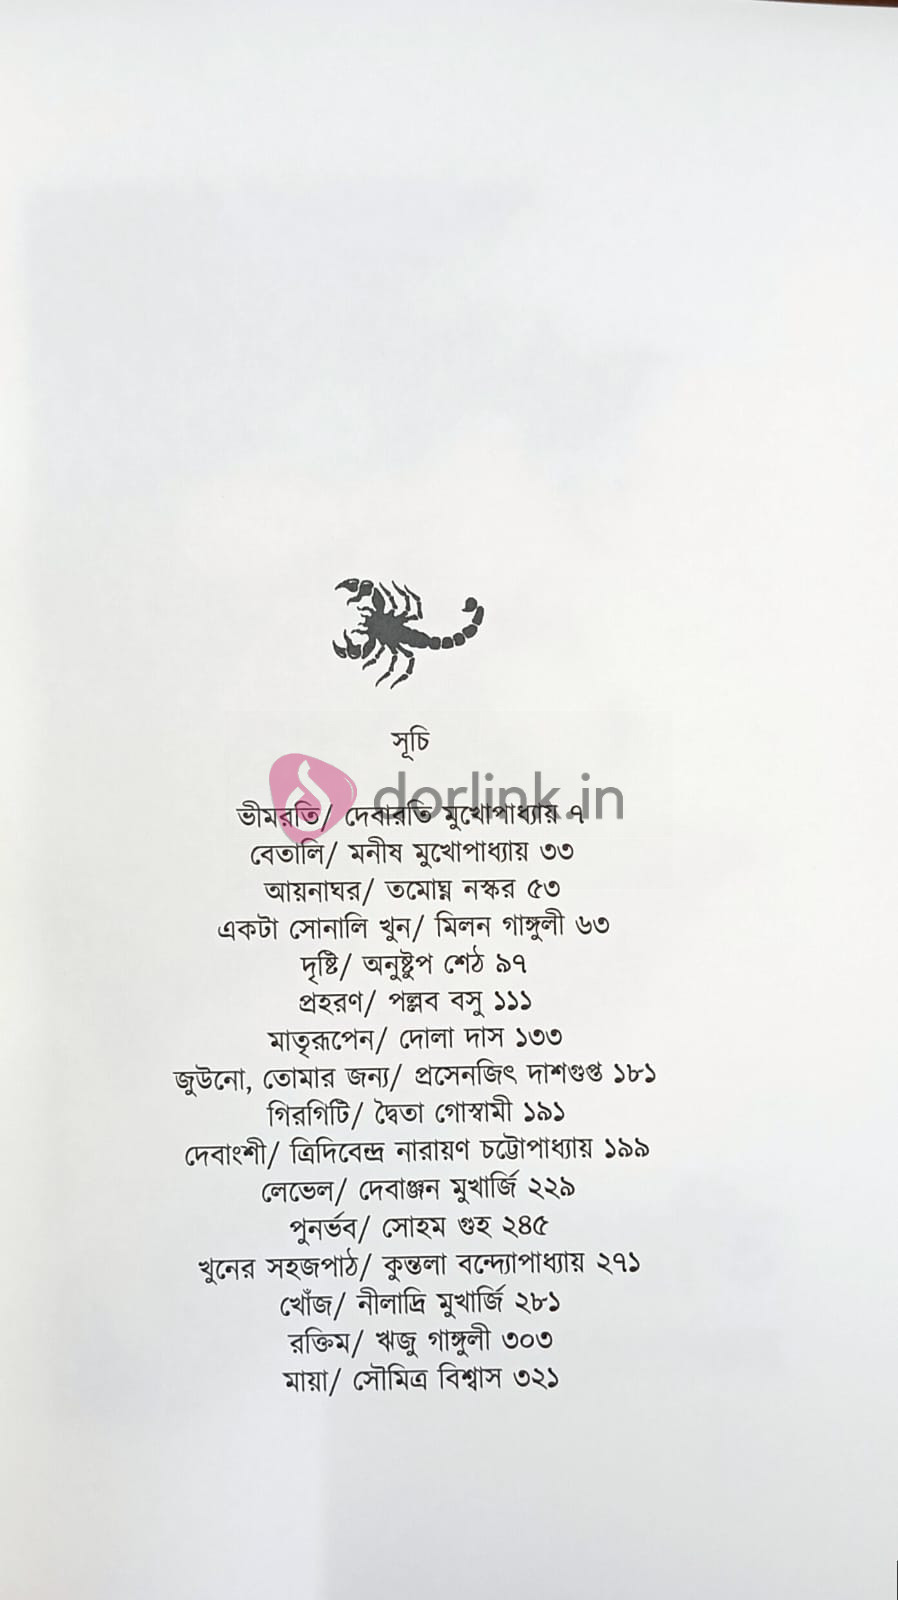 সূচি
dorlink.in
ভীমরতি/ দেবারতি মুখোপাধ্যায় ৭
বেতালি/ মনীষ মুখোপাধ্যায় ৩৩
আয়নাঘর/ তমোঘ্ন নস্কর ৫৩
একটা সোনালি খুন/ মিলন গাঙ্গুলী ৬৩
দৃষ্টি/ অনুষ্টুপ শেঠ ৯৭
প্রহরণ/ পল্লব বসু ১১১
মাতৃরূপেন/ দোলা দাস ১৩৩
জুউনো, তোমার জন্য/ প্রসেনজিৎ দাশগুপ্ত ১৮১
গিরগিটি/ দ্বৈতা গোস্বামী ১৯১
দেবাংশী/ ত্রিদিবেন্দ্র নারায়ণ চট্টোপাধ্যায় ১৯৯
লেভেল/ দেবাঞ্জন মুখার্জি ২২৯
পুনর্ভব/ সোহম গুহ ২৪৫
খুনের সহজপাঠ/ কুন্তলা বন্দ্যোপাধ্যায় ২৭১
খোঁজ/ নীলাদ্রি মুখার্জি ২৮১
রক্তিম/ ঋজু গাঙ্গুলী ৩০৩
মায়া/ সৌমিত্র বিশ্বাস ৩২১